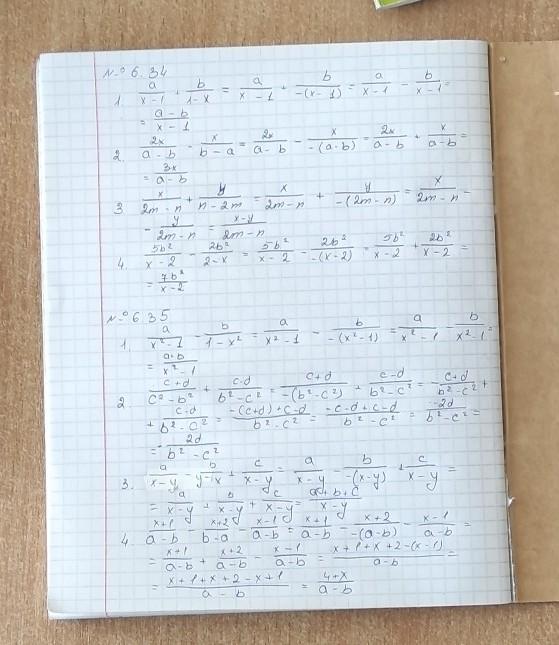 № 6.34
1. a/(x-1) + b/(1-x) = a/(x-1) + b/(-(x-1)) = a/(x-1) - b/(x-1) =
= (a-b)/(x-1)
2. 2x/(a-b) - x/(b-a) = 2x/(a-b) - x/(-(a-b)) = 2x/(a-b) + x/(a-b) =
= 3x/(a-b)
3. x/(2m-n) + y/(n-2m) = x/(2m-n) + y/(-(2m-n)) = x/(2m-n) -
- y/(2m-n) = (x-y)/(2m-n)
4. 5b²/(x-2) - 2b²/(2-x) = 5b²/(x-2) - 2b²/(-(x-2)) = 5b²/(x-2) + 2b²/(x-2) =
= 7b²/(x-2)
№ 6.35
1. a/(x²-1) - b/(1-x²) = a/(x²-1) - b/(-(x²-1)) = a/(x²-1) b/(x²-1) =
= (a+b)/(x²-1)
2. (c+d)/(c²-b²) + (c-d)/(b²-c²) = (c+d)/(-(b²-c²)) + (c-d)/(b²-c²) = -(c+d)/(b²-c²) +
+ (c-d)/(b²-c²) = (-(c+d)+c-d)/(b²-c²) = (-c-d+c-d)/(b²-c²) = -2d/(b²-c²) =
= - 2d/(b²-c²)
3. a/(x-y) - b/(y-x) + c/(x-y) = a/(x-y) - b/(-(x-y)) + c/(x-y) =
= a/(x-y) + b/(x-y) + c/(x-y) = (a+b+c)/(x-y)
4. (x+1)/(a-b) - (x+2)/(b-a) - (x-1)/(a-b) = (x+1)/(a-b) - (x+2)/(-(a-b)) - (x-1)/(a-b) =
= (x+1)/(a-b) + (x+2)/(a-b) - (x-1)/(a-b) = (x+1+x+2-(x-1))/(a-b) =
= (x+1+x+2-x+1)/(a-b) = (4+x)/(a-b)